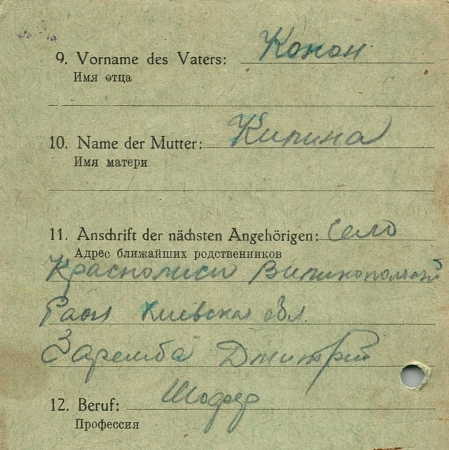 9. Vorname des Vaters: Конон
Имя отца
10. Name der Mutter: Килина
Имя матери
11. Anschrift der nächsten Angehörigen: село
Адрес ближайших родственников
Раон Киевска обл.
Заремба Дмитрій
12. Beruf: Шофер
Профессия